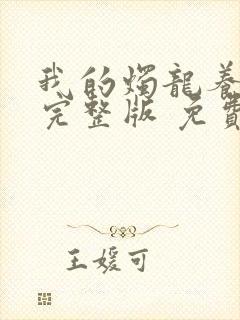 我的燭龍養
完整版 免費
王媛可